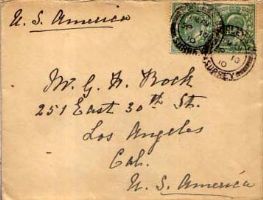 U. S. America
Mr. G. F. Rock
251 East 30th St.
Los Angeles
Cal.
U. S. America